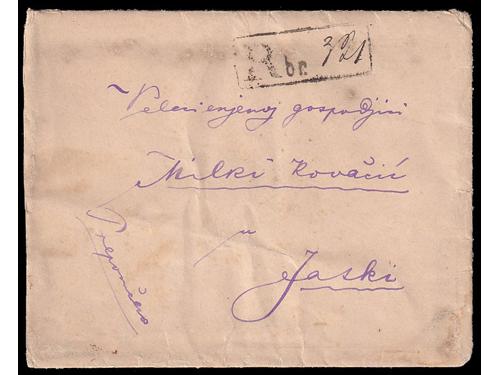 R br. 321
Velecijenjenoj gospodjici
Milki Kovačić
u
Jaski
Preporučeno